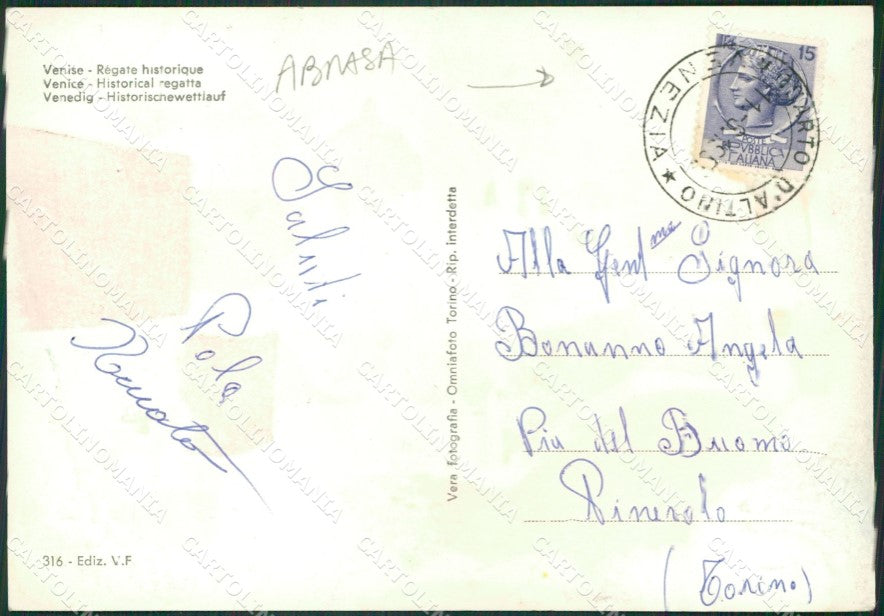 Venise - Régate historique
Venice - Historical regatta
Venedig - Historiscnewettlauf
ABRASA
15
REPVBBLICA
ITALIANA
QUARTO D'ALTINO
VENEZIA ★
Saluti
Pola
Renato
Vera fotografia - Omniafoto Torino - Rip. interdetta
Alla Gent ma Signora
Bonanno Angela
Via del Buomo
Pinerolo
(Torino)
316 - Ediz. V.F
CARTOLINOMANIA